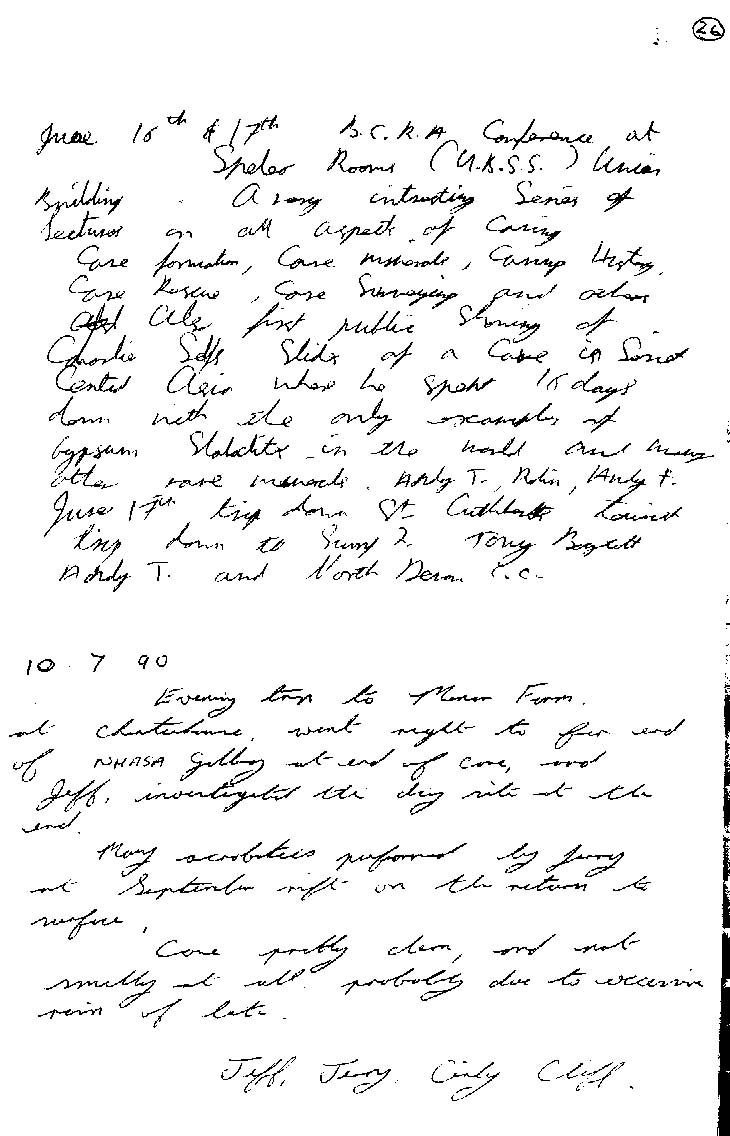 26
June 16th & 17th B.C.R.A. Conference at
Speleo Rooms (U.B.S.S.) Union
Building. A very intresting Series of
Lectures on all aspects of Caving
Cave formation, Cave minerals, Caving History,
Cave Rescue, Cave Surveying and others
Also first public Showing of
Charlie Selfs Slides of a Cave in Soviet
Central Asia where he spent 16 days
down with the only examples of
Gypsum Stalactites in the world and many
other rare minerals. Andy T., Robin, Andy F.
June 17th trip down St. Cuthberts tourist
trip down to Sump 2 Tony
Andy T. and North Devon C.C.
10 . 7 90
Evening trip to Manor Farm.
at Charterhouse, went right to far end
of NHASA Gallery at end of cave, and
Jeff, investigated the dig site at the
end.
Many acrobatics preformed by Jerry
at September rift on the return to
surface.
Cave pretty clean, and not
smelly at all. probably due to excessive
rain of late.
Jeff, Jerry, Cindy Cliff.